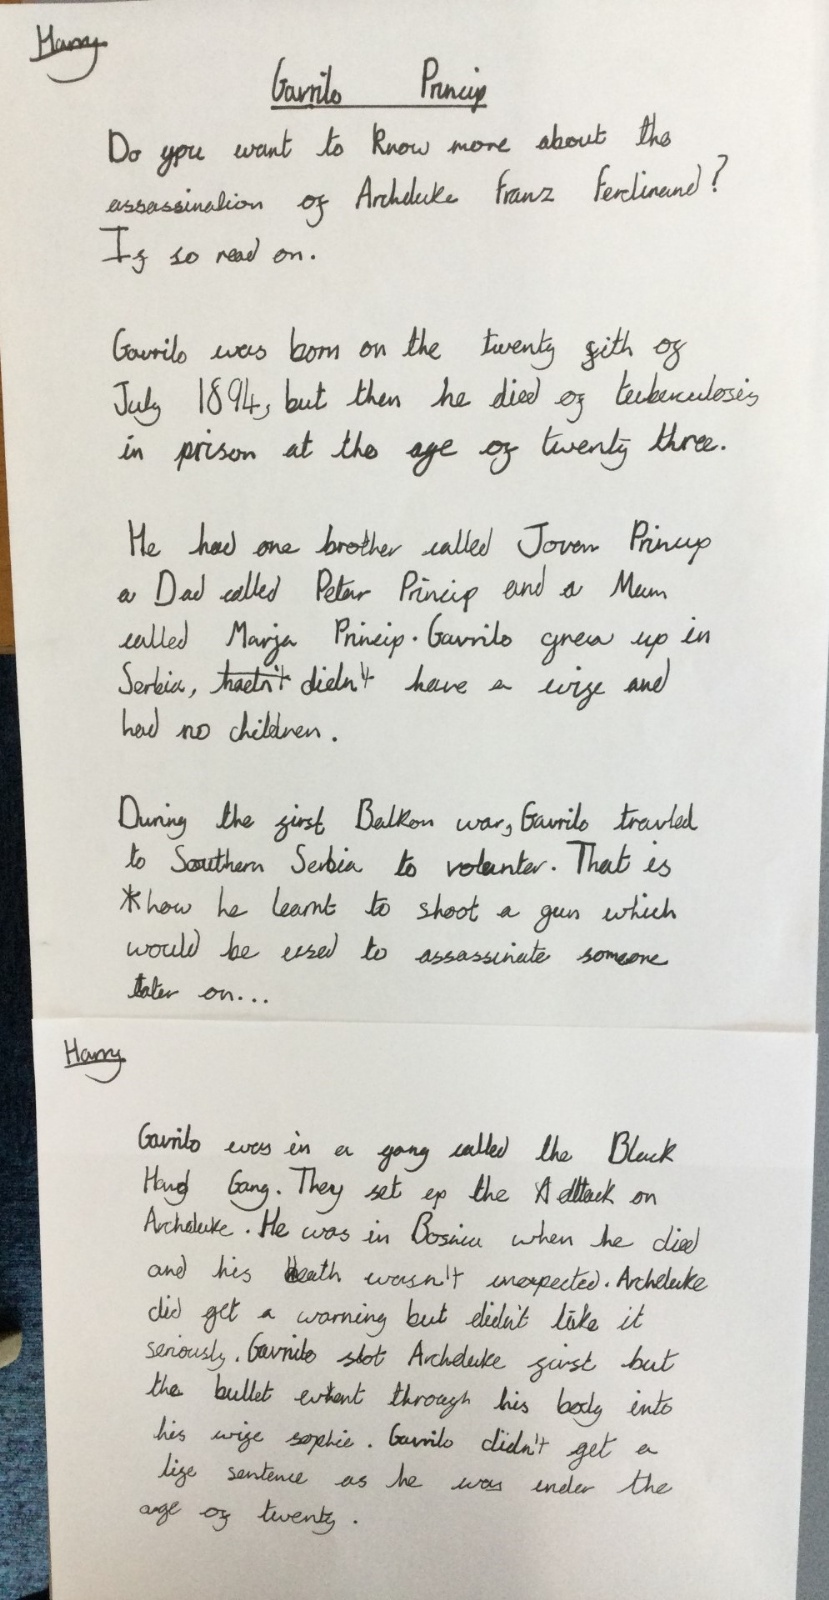 Harry
Gavrilo Princip
Do you want to know more about the
assassination of Archduke Franz Ferdinand?
If so read on.
Gavrilo was born on the twenty fith of
July 1894, but then he died of tuberculosis
in prison at the age of twenty three.
He had one brother called Jovan Princip
a Dad called Petar Princip and a Mum
called Marja Princip. Gavrilo grew up in
Serbia, hadn't didn't have a wife and
had no children.
During the first Balkon war, Gavrilo travled
to Southern Serbia to volunter. That is
*how he learnt to shoot a gun which
would be used to assassinate someone
later on...
Harry
Gavrilo was in a gang called the Black
Hand Gang. They set up the Attack on
Archduke. He was in Bosnia when he died
and his death wasn't unexpected. Archduke
did get a warning but didn't take it
seriously. Gavrilo shot Archduke first but
the bullet went through his body into
his wife sophie. Gavrilo didn't get a
life sentence as he was under the
age of twenty.